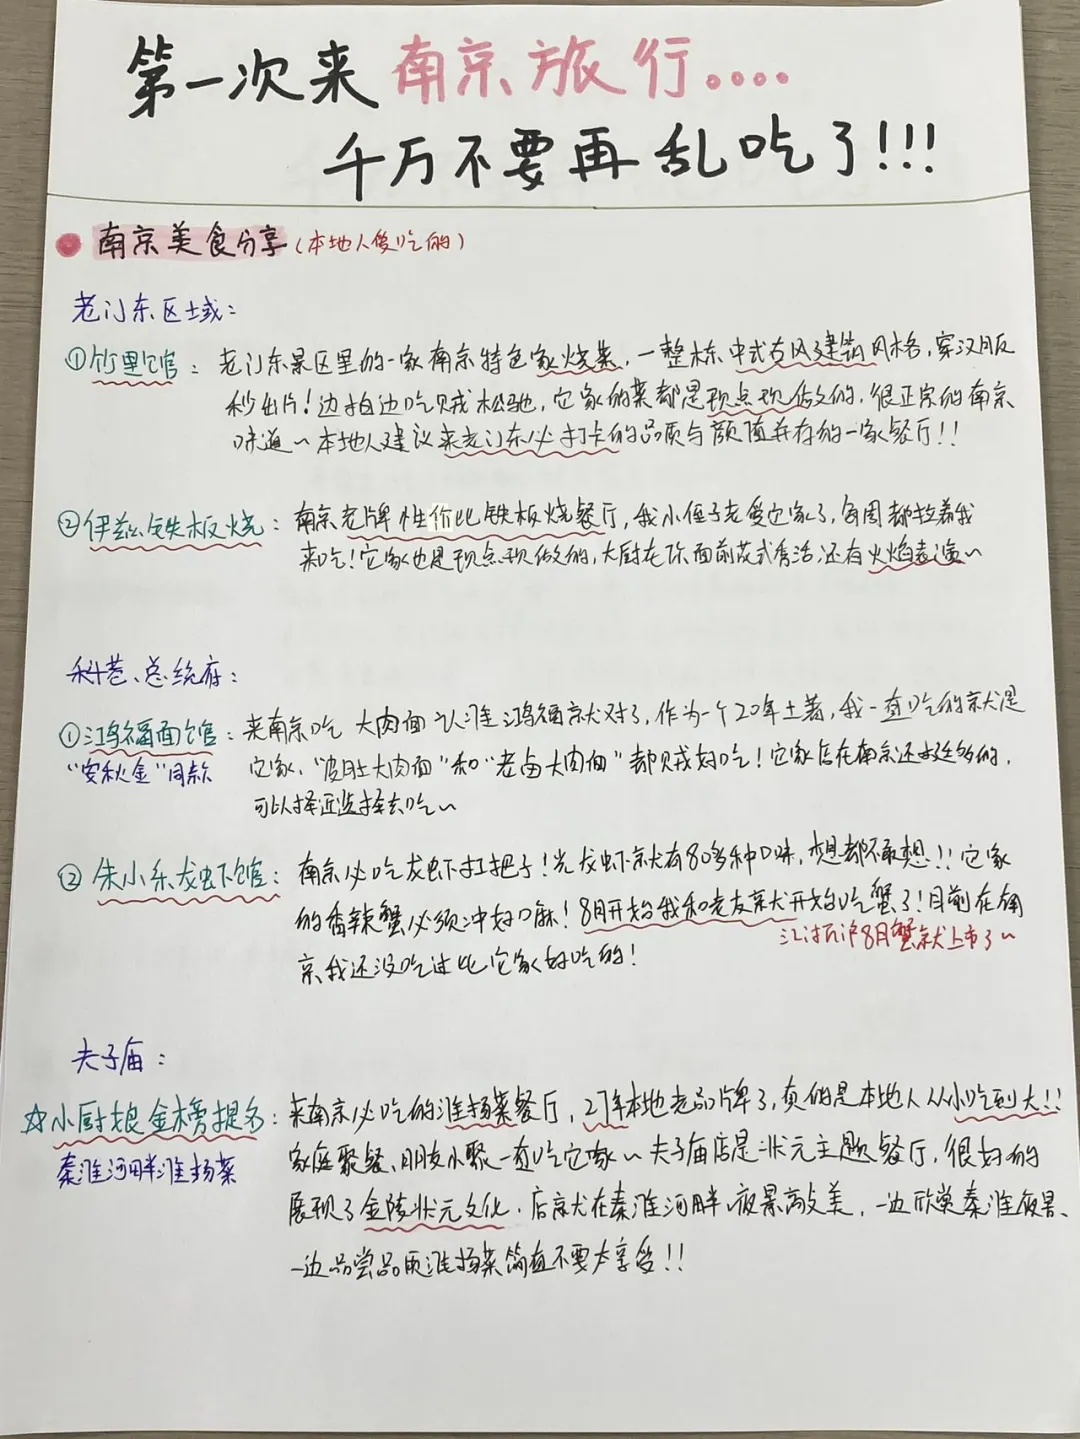 第一次来南京旅行....
千万不要再乱吃了!!!
南京美食分享(本地人爱吃的)
老门东区域:
①竹里馆: 老门东景区里的一家南京特色家烧菜,一整栋中式古风建筑风格,穿汉服
秒出片!边拍边吃贼松驰,它家的菜都是现点现做的,很正宗的南京
味道~本地人建议来老门东必打卡的品质与颜值并存的一家餐厅!!
②伊兹铁板烧: 南京老牌性价比铁板烧餐厅,我小侄子老爱它家了,每周都拉着我
来吃!它家也是现点现做的,大厨在你面前花式秀活,还有火焰表演~
科巷、总统府:
①鸿福面馆: 来南京吃大肉面认准鸿福就对了,作为一个20年土著,我一直吃的就是
"安秋金"同款 它家,"皮肚大肉面"和"老卤大肉面"都贼好吃!它家店在南京还挺多的,
可以择近选择去吃~
②朱小乐龙虾馆: 南京必吃龙虾扛把子!光龙虾就有80多种口味,想都不敢想!!它家
的香辣蟹必须冲好口嘛!8月开始我和老友就开始吃蟹了!目前在南
8月蟹就上市了~
京我还没吃过比它家好吃的!
夫子庙:
☆小厨娘金榜提名: 来南京必吃的淮扬菜餐厅,27年本地老品牌了,真的是本地人从小吃到大!!
秦淮河畔淮扬菜 家庭聚餐、朋友小聚一直吃它家~夫子庙店是状元主题餐厅,很好的
展现了金陵状元文化,店就在秦淮河畔,夜景高文美,一边欣赏秦淮夜景、
一边品尝品质淮扬菜简直不要太享受!!